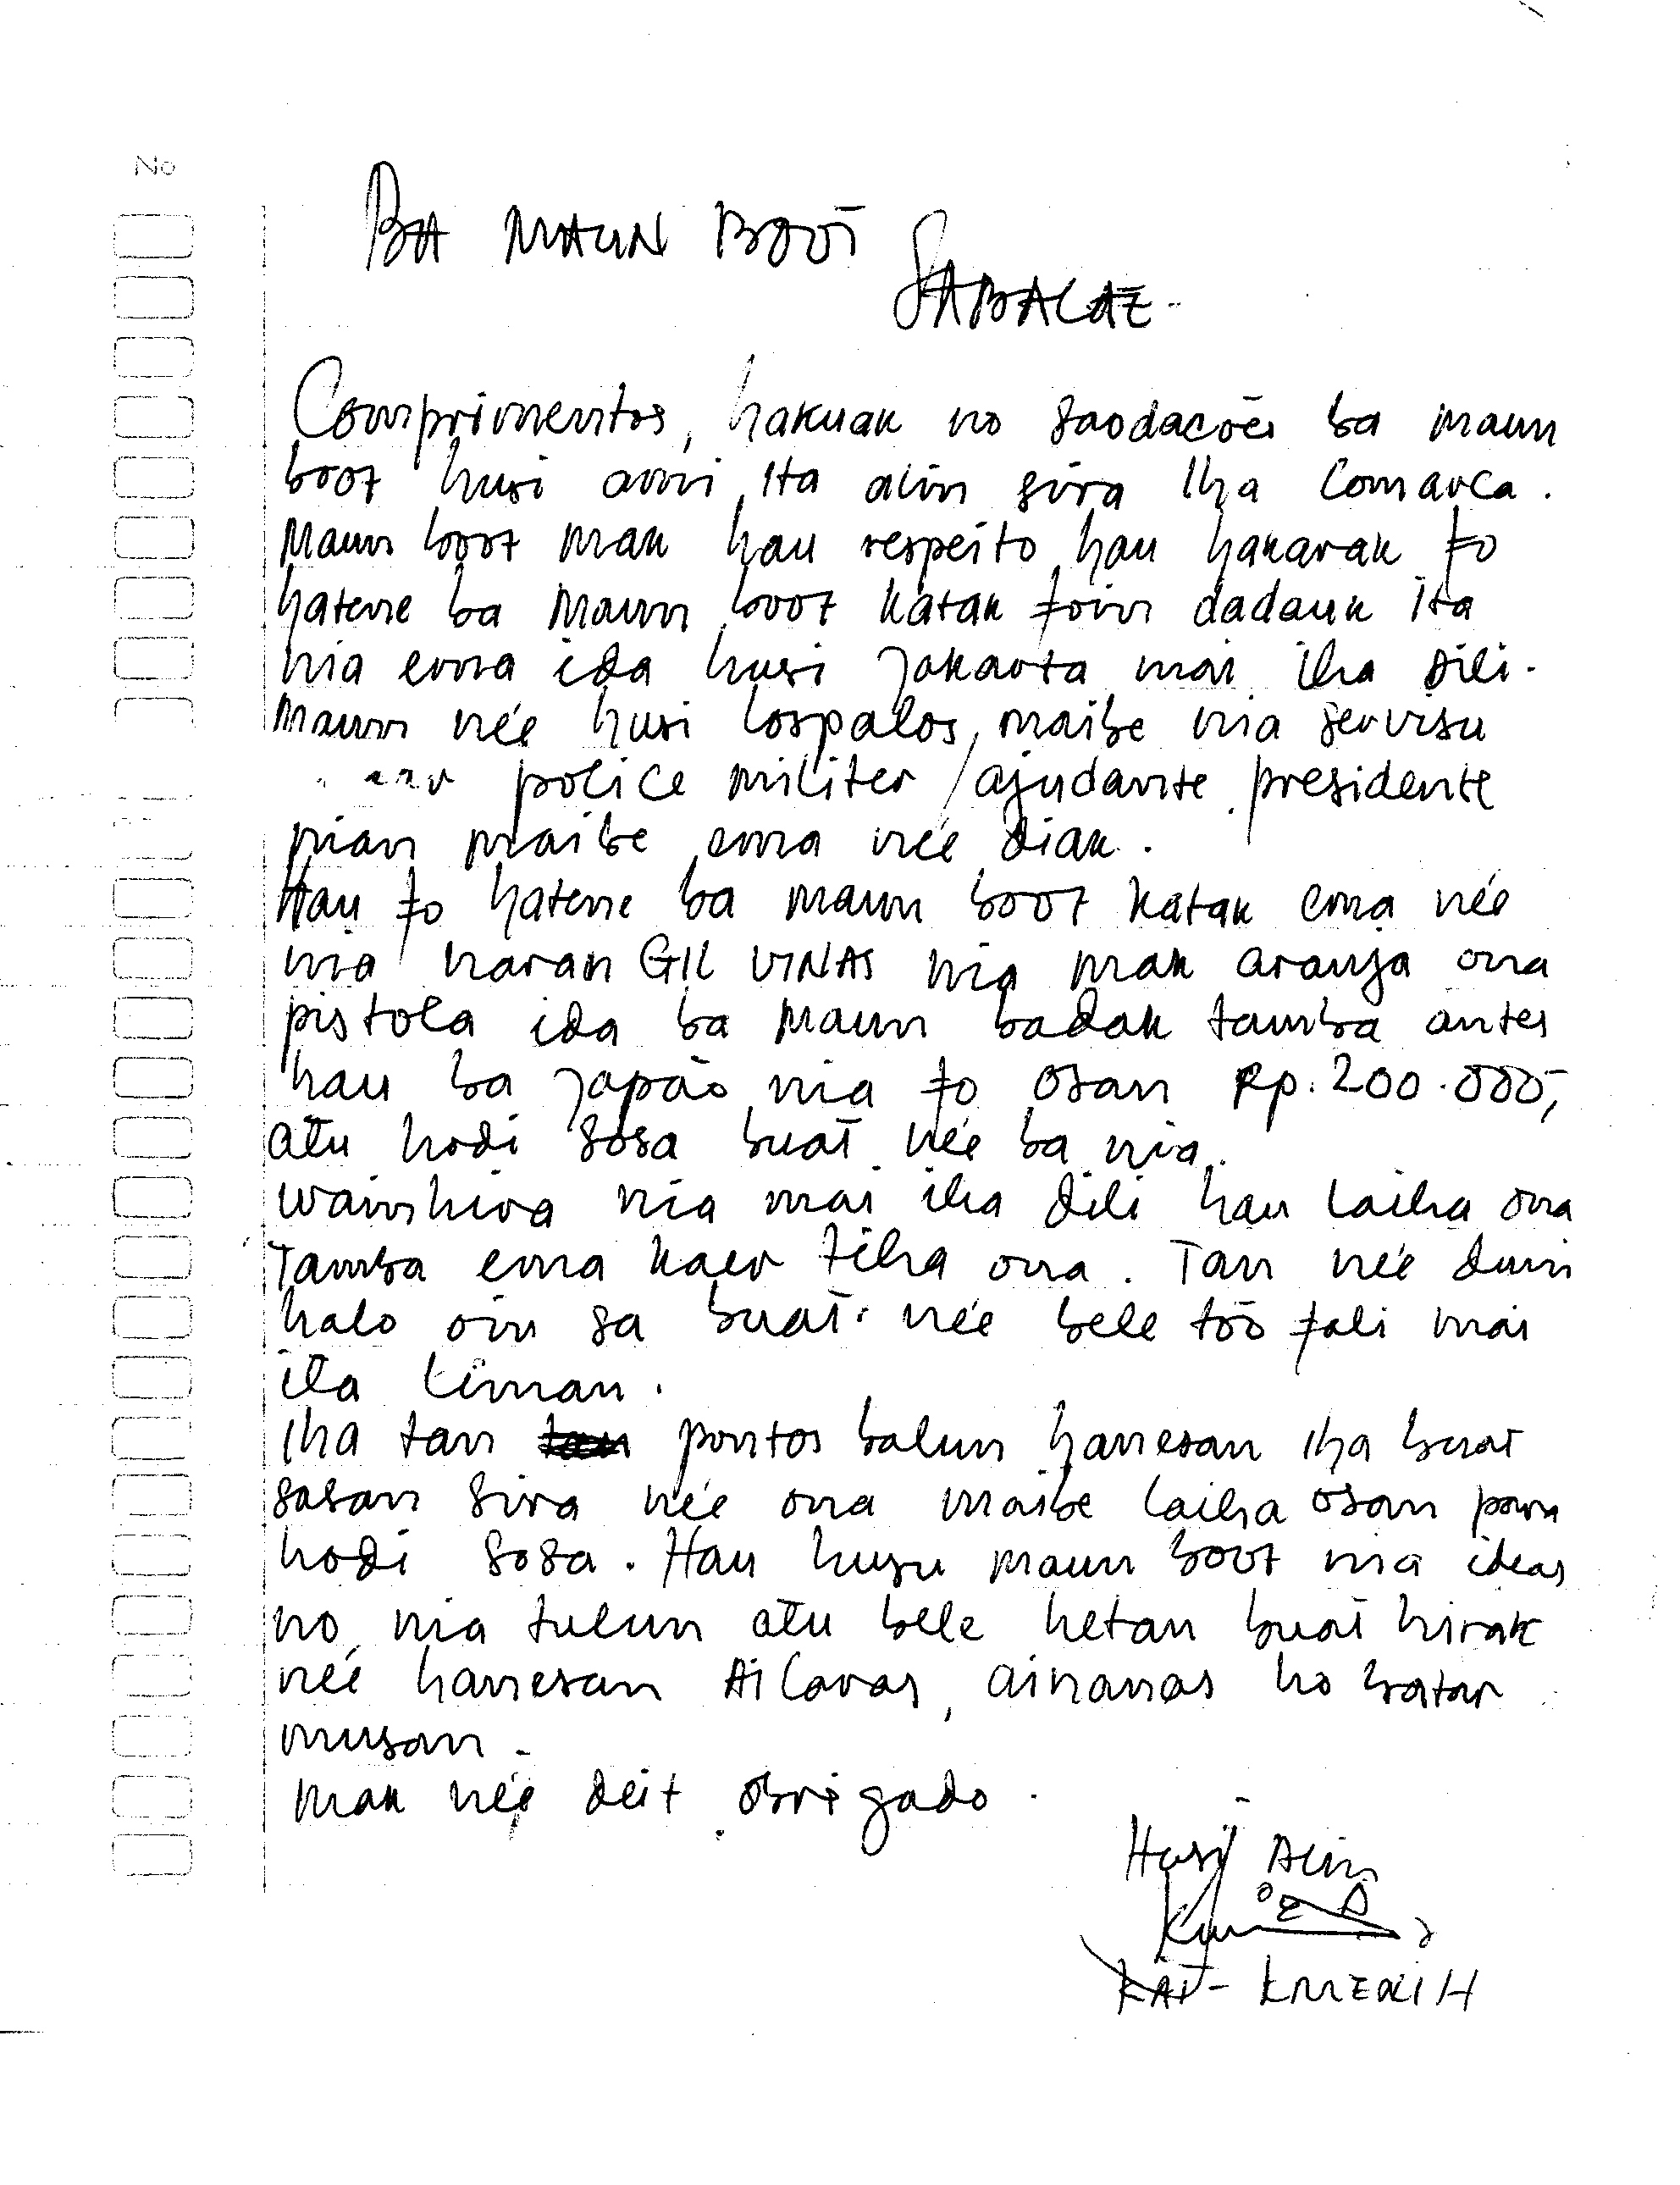 No
BA MAUN BOOT
SABALAE.
Comprimentos, hakuak no saodacões ba maun
boot husi ami, ita alin sira iha Comarca.
Maun boot mak hau respeito, hau hakarak fo
hatene ba Maun boot katak foin dadauk ita
nia ema ida husi Jakarta mai iha Dili.
Maun neé husi Lospalos, maibe nia servisu
police militer / ajudante presidente
nian maibe ema neé diak.
Hau fo hatene ba maun boot katak ema neé
nia naran GIL VINAS nia mak aranja ona
pistola ida ba Maun badak tamba antes
hau ba Japão nia fo osan Rp. 200.000,-
atu hodi sosa buat neé ba nia.
Wainhira nia mai iha Dili hau laiha ona
Tamba ema kaer tiha ona. Tan neé duni
halo oin sa buat neé bele too fali mai
ita liman.
Iha tan pontos balun hanesan iha buat
sasan sira neé ona maibe laiha osan para
hodi sosa. Hau husu maun boot nia ideas
no nia tulun atu bele hetan buat hirak
neé hanesan Ai Lavas, ainanas ho batar
musan.
mak neé deit obrigado.
Husi Alin
KAI - KMEDIH